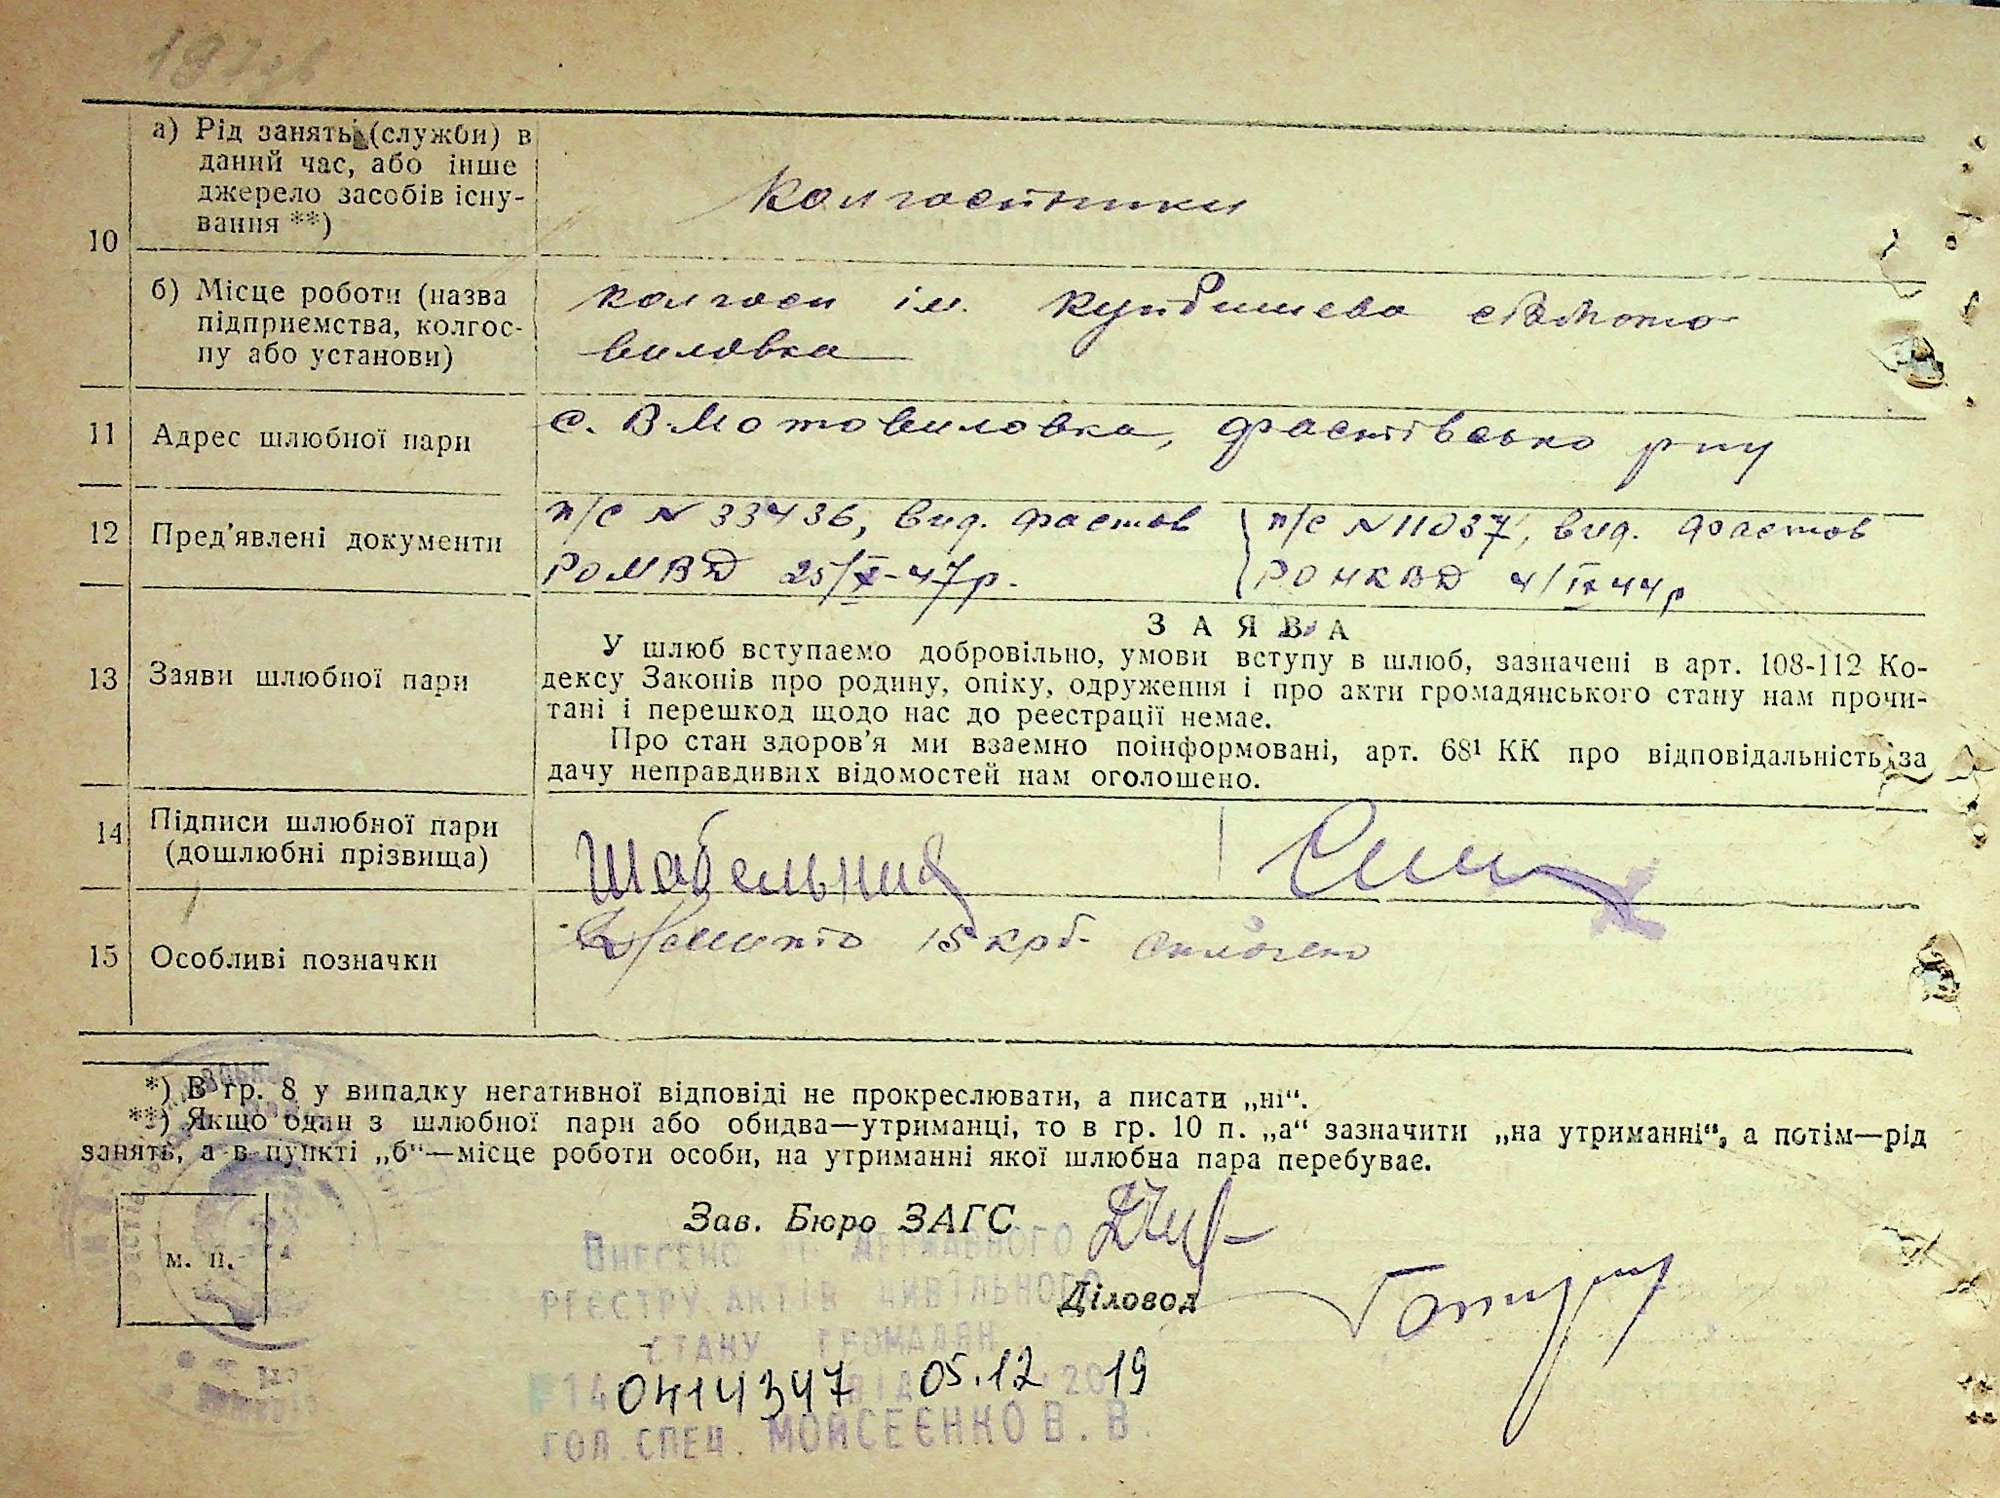 10
а) Рід занять (служби) в
даний час, або інше
джерело засобів існу-
вання **)
Колгоспники
б) Місце роботи (назва
підприємства, колгос-
пу або установи)
колгосп ім. Куйбишева
виловка
11
Адрес шлюбної пари
с. В-Мотовиловка, Фастівсько р-ну
12
Пред'явлені документи
п/с № 33436, вид. Фастов
РОМВД 25/X-47р.
п/с № 11037, вид. Фастов
РОНКВД 4/IX 44р
13
Заяви шлюбної пари
ЗАЯВА
У шлюб вступаємо добровільно, умови вступу в шлюб, зазначені в арт. 108-112 Ко-
дексу Законів про родину, опіку, одруження і про акти громадянського стану нам прочи-
тані і перешкод щодо нас до реєстрації немає.
Про стан здоров'я ми взаємно поінформовані, арт. 68¹ КК про відповідальність за
дачу неправдивих відомостей нам оголошено.
14
Підписи шлюбної пари
(дошлюбні прізвища)
Шабельник
15
Особливі позначки
15 крб.
*) В гр. 8 у випадку негативної відповіді не прокреслювати, а писати „ні“.
**) Якщо один з шлюбної пари або обидва—утриманці, то в гр. 10 п. „а“ зазначити „на утриманні“, а потім—рід
занять, а в пункті „б“—місце роботи особи, на утриманні якої шлюбна пара перебуває.
м. п.
Зав. Бюро ЗАГС
Діловод
ВНЕСЕНО ДО ДЕРЖАВНОГО
РЕЄСТРУ АКТІВ ЦИВІЛЬНОГО
СТАНУ ГРОМАДЯН
№ 140414347 ВІД 05.12 2019
ГОЛ. СПЕЦ. МОЙСЕЄНКО В. В.